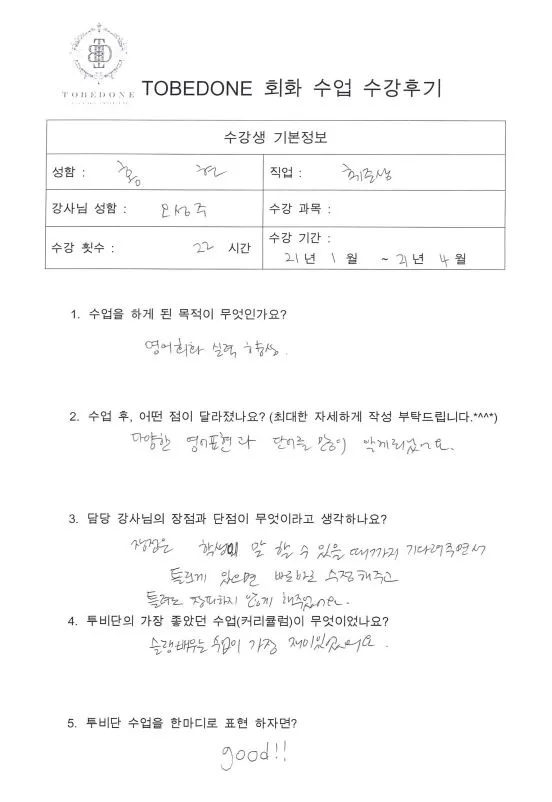 TOBEDONE
TOBEDONE 회화 수업 수강후기
수강생 기본정보
성함 : 황 현
직업 : 취준생
강사님 성함 : 오성주
수강 과목 :
수강 횟수 : 22 시간
수강 기간 :
21년 1 월 ~ 21년 4 월
1. 수업을 하게 된 목적이 무엇인가요?
영어회화 실력 향상.
2. 수업 후, 어떤 점이 달라졌나요? (최대한 자세하게 작성 부탁드립니다.*^^*)
다양한 영어표현과 단어를 많이 알게되었어요.
3. 담당 강사님의 장점과 단점이 무엇이라고 생각하나요?
장점은 학생이 말 할 수 있을 때까지 기다려주면서
틀린게 있으면 바로바로 수정해주고
틀려도 창피하지 않게 해주었어요.
4. 투비단의 가장 좋았던 수업(커리큘럼)이 무엇이었나요?
슬랭배우는 수업이 가장 재미있었어요.
5. 투비단 수업을 한마디로 표현 하자면?
good!!